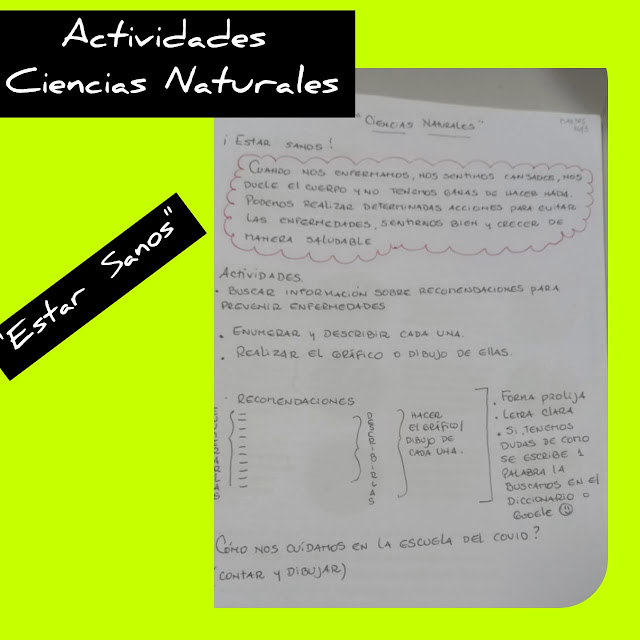 Actividades
Ciencias Naturales
"Estar Sanos"
"Ciencias Naturales"
¡Estar sanos!
Cuando nos enfermamos, nos sentimos cansados, nos
duele el cuerpo y no tenemos ganas de hacer nada.
Podemos realizar determinadas acciones para evitar
las enfermedades, sentirnos bien y crecer de
manera saludable
Actividades.
• Buscar información sobre recomendaciones para
prevenir enfermedades
• Enumerar y describir cada una.
• Realizar el gráfico o dibujo de ellas.
• Recomendaciones
Describirlas
Hacer
el gráfico/
dibujo de
cada una.
• Forma prolija
• Letra clara
• Si, tenemos
dudas de como
se escribe 1
palabra la
buscamos en el
diccionario o
Google
Cómo nos cuidamos en la escuela del covid?
(contar y dibujar)